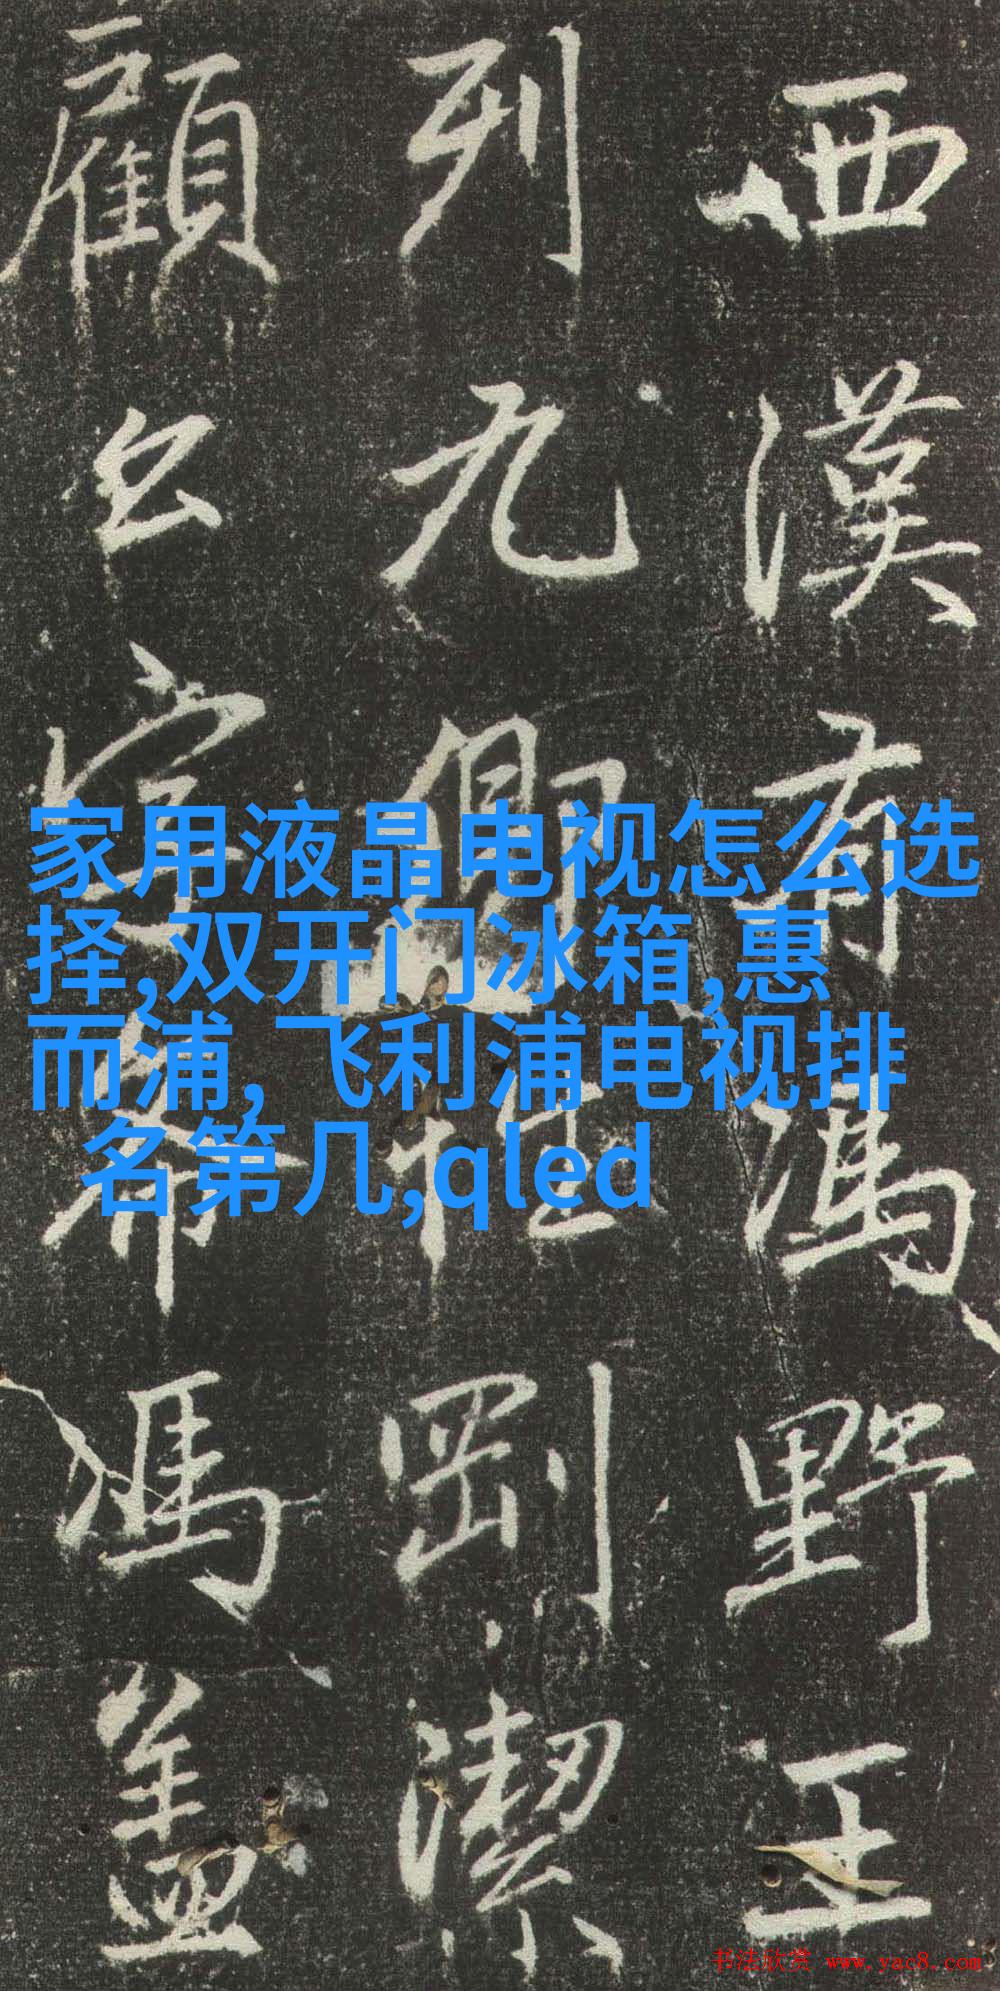 西漢有馮野王
列九卿性剛潔
顧公字希馮蓋
家用液晶电视怎么选
择,双开门冰箱,惠
而浦, 飞利浦电视排
名第几,qled
书法欣赏 www.yac8.com